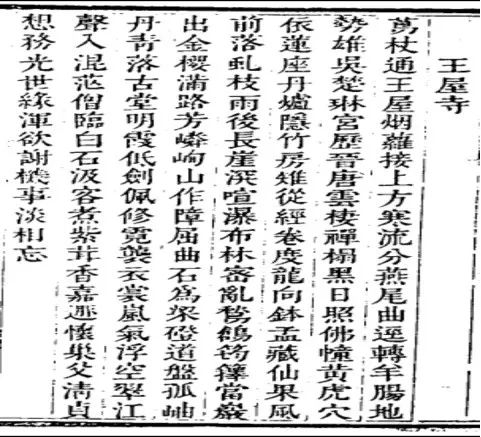 王屋寺
萬杖通王屋烟蘿接上方寒流分燕尾曲逕轉羊腸地
勢雄吳楚琳宮歷晉唐雲棲禪榻黑日照佛幢黃虎穴
依蓮座丹爐隱竹房雉從經卷度龍向鉢盂藏仙果風
前落虬枝雨後長崖深喧瀑布林密亂鶖鶬筍籜當巖
出金櫻滿路芳嶙峋山作障屈曲石為梁磴道盤孤岫
丹青落古堂明霞低劍佩修霓襲衣裳嵐氣浮空翠江
聲入混茫僧臨白石汲客煮紫茸香嘉遯懷巢父清貞
想務光世緣渾欲謝機事淡相忘